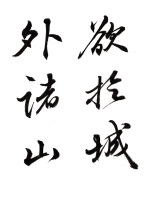 欲於城
外諸山